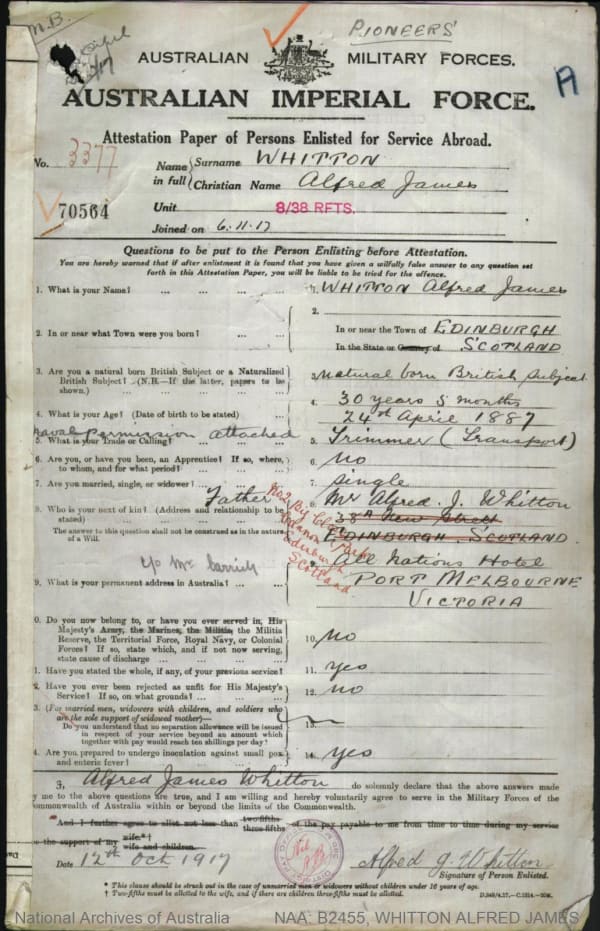 N.B.
PIONEERS
AUSTRALIAN MILITARY FORCES.
A
AUSTRALIAN IMPERIAL FORCE.
Attestation Paper of Persons Enlisted for Service Abroad.
No. 3377
Name in full { Surname WHITTON
Christian Name Alfred James
70564
Unit 8/38 RFTS.
Joined on 6.11.17
Questions to be put to the Person Enlisting before Attestation.
You are hereby warned that if after enlistment it is found that you have given a wilfully false answer to any question set
forth in this Attestation Paper, you will be liable to be tried for the offence.
1. What is your Name? ... ... ... ... 1. WHITTON Alfred James
2. In or near what Town were you born? ... ... 2. In or near the Town of EDINBURGH
In the State or County of SCOTLAND
3. Are you a natural born British Subject or a Naturalized
British Subject? (N.B.—If the latter, papers to be
shown.) ... ... ... 3. Natural born British Subject
4. What is your Age? (Date of birth to be stated) ... 4. 30 years 5 months
24th April 1887
naval permission attached
5. What is your Trade or Calling? ... ... 5. Trimmer (Transport)
6. Are you, or have you been, an Apprentice? If so, where,
to whom, and for what period? ... ... 6. No
7. Are you married, single, or widower? ... 7. Single
Father
8. Who is your next of kin? (Address and relationship to be
stated) ... 8. Mr Alfred. J. Whitton
38A New Street
EDINBURGH SCOTLAND
The answer to this question shall not be construed as in the nature
of a Will.
Edinburgh
Scotland
9. What is your permanent address in Australia? ... 9. All Nations Hotel
PORT MELBOURNE
VICTORIA
0. Do you now belong to, or have you ever served in, His
Majesty's Army, the Marines, the Militia, the Militia
Reserve, the Territorial Force, Royal Navy, or Colonial
Forces? If so, state which, and if not now serving,
state cause of discharge ... 10. No
1. Have you stated the whole, if any, of your previous service? 11. yes
2. Have you ever been rejected as unfit for His Majesty's
Service? If so, on what grounds? ... 12. no
3. (For married men, widowers with children, and soldiers who
are the sole support of widowed mother)—
Do you understand that no separation allowance will be issued
in respect of your service beyond an amount which
together with pay would reach ten shillings per day? 13.
4. Are you prepared to undergo inoculation against small pox
and enteric fever? ... 14. yes
3, Alfred James Whitton do solemnly declare that the above answers made
y me to the above questions are true, and I am willing and hereby voluntarily agree to serve in the Military Forces of the
ommonwealth of Australia within or beyond the limits of the Commonwealth.
And I further agree to allot not less than two-fifths three-fifths of the pay payable to me from time to time during my service
the support of my wife.*†
wife and children.
Date 12th Oct 1917
Alfred J. Whitton
Signature of Person Enlisted.
* This clause should be struck out in the case of unmarried men or widowers without children under 16 years of age.
† Two-fifths must be allotted to the wife, and if there are children three-fifths must be allotted.
D.349/4.17.—C.3214.—50M.
National Archives of Australia
NAA: B2455, WHITTON ALFRED JAMES